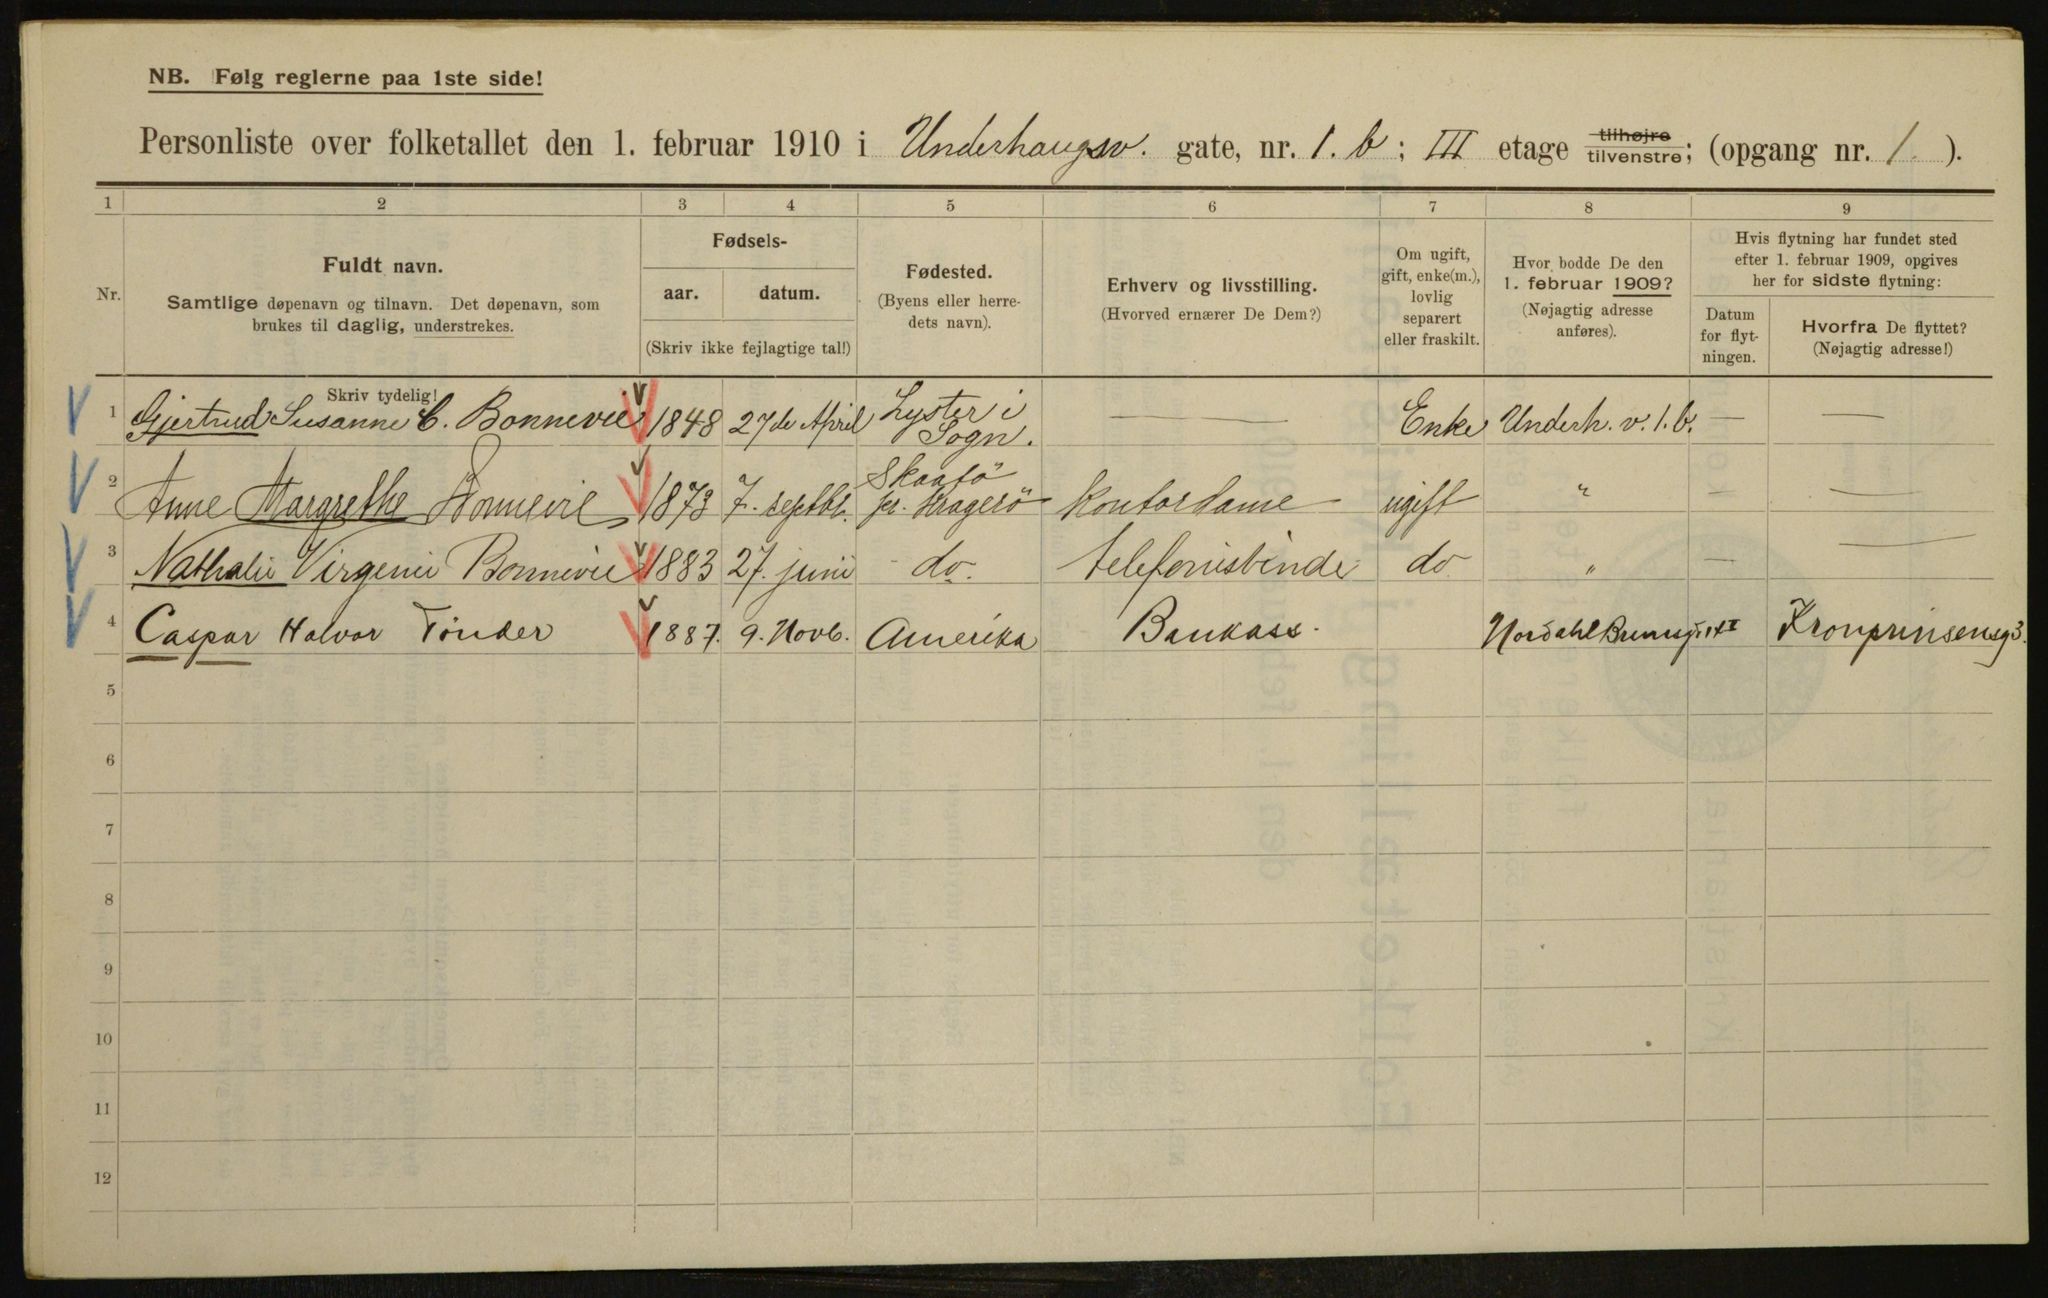 NB. Følg reglerne paa 1ste side!
Personliste over folketallet den 1. februar 1910 i Underhaugsv. gate, nr. 1. b; III etage tilhøjre tilvenstre; (opgang nr. 1.).
1 2 3 4 5 6 7 8 9
Nr.
Fuldt navn.
Samtlige døpenavn og tilnavn. Det døpenavn, som
brukes til daglig, understrekes.
Skriv tydelig!
Fødsels-
aar. datum.
(Skriv ikke fejlagtige tal!)
Fødested.
(Byens eller herre-
dets navn).
Erhverv og livsstilling.
(Hvorved ernærer De Dem?)
Om ugift,
gift, enke(m.),
lovlig
separert
eller fraskilt.
Hvor bodde De den
1. februar 1909?
(Nøjagtig adresse
anføres).
Hvis flytning har fundet sted
efter 1. februar 1909, opgives
her for sidste flytning:
Datum
for flyt-
ningen.
Hvorfra De flyttet?
(Nøjagtig adresse!)
1 Gjertrud Susanne C. Bonnevie 1848 27de April Lyster i Sogn. — Enke Underh. v. 1. b. — —
2 Anne Margrethe Bonnevie 1873 7. septbr. Skaatö pr. Kragerö Kontordame ugift " — —
3 Nathalie Virginie Bonnevie 1883 27. juni do. telefonistinde do " — —
4 Caspar Halvor Tönder 1887. 9. Novb. Amerika Bankass. Nordahl Brunsgt Kronprinsensg 3.
5
6
7
8
9
10
11
12